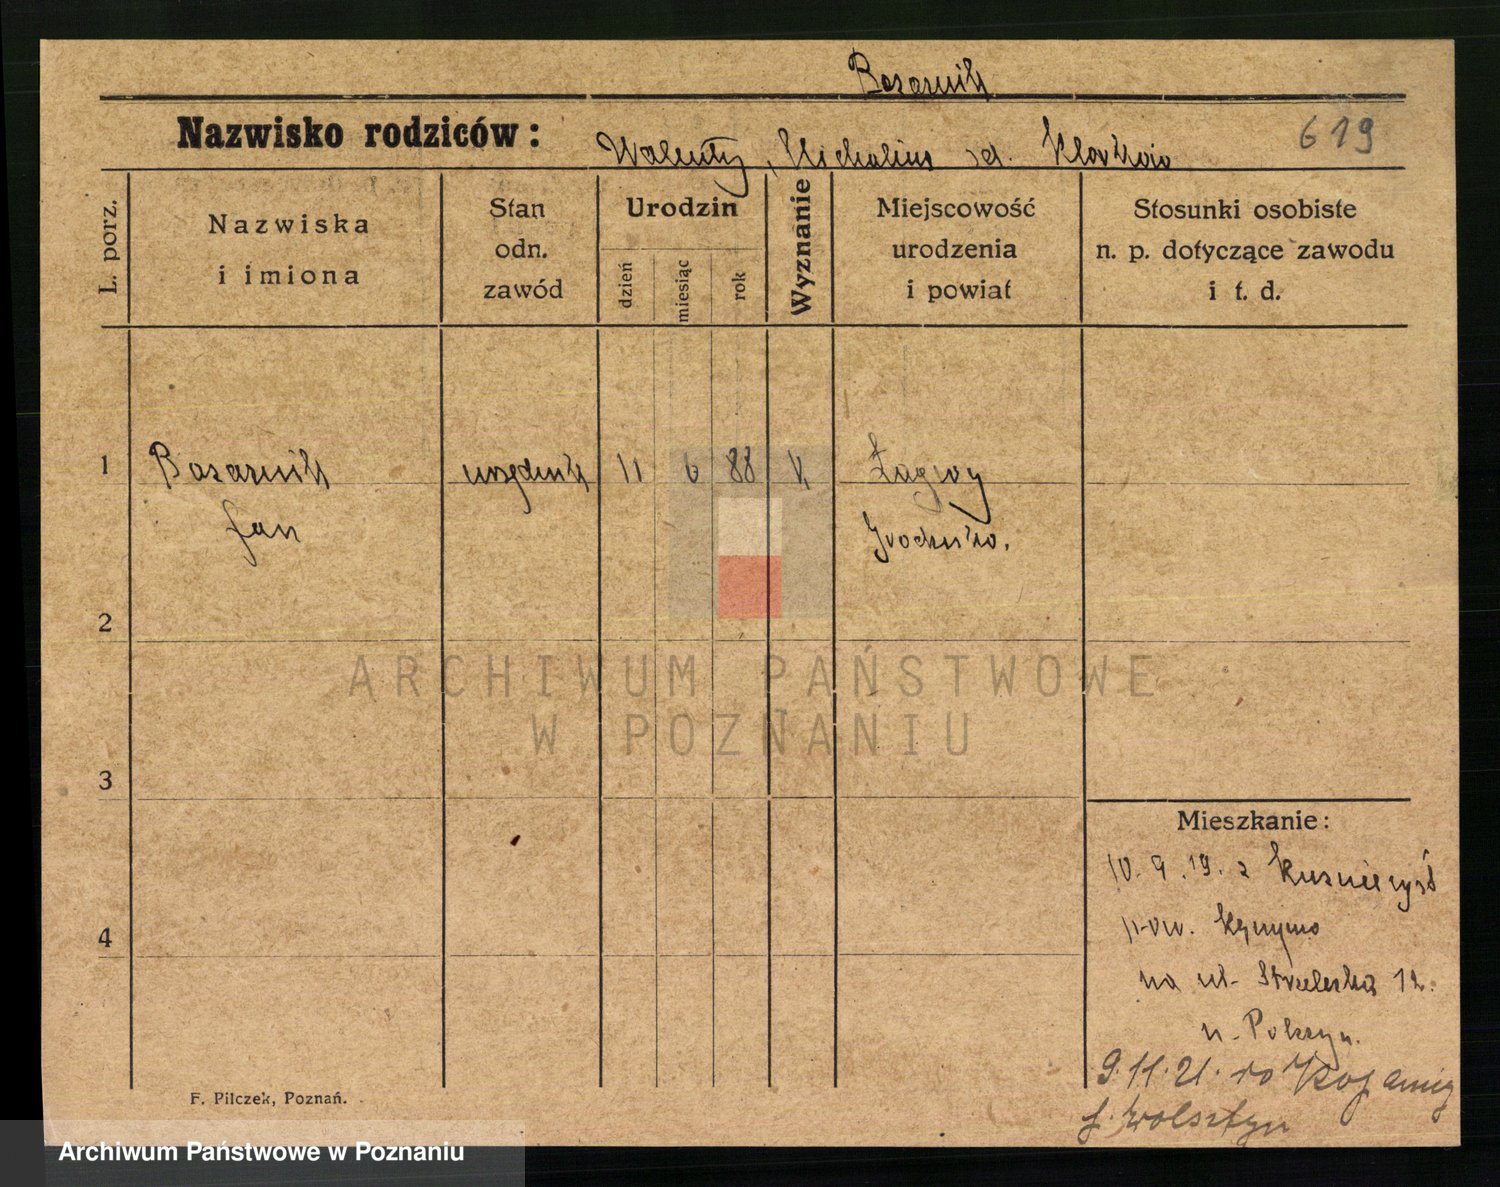 Bazarnik
Nazwisko rodziców: Walenty, Michalina
619
L. porz.
Nazwiska
i imiona
Stan
odn.
zawód
Urodzin
dzień
miesiąc
rok
Wyznanie
Miejscowość
urodzenia
i powiat
Stosunki osobiste
n. p. dotyczące zawodu
i t. d.
1
Bazarnik urzędnik 11 6 88 k Łagwy
Jan Grodzisko.
2
3
4
Mieszkanie:
10. 9. 19. z
pow.
na ul. Strzelecka 12.
9.11.21. do
p. Wolsztyn
F. Pilczek, Poznań.
ARCHIWUM PAŃSTWOWE
W POZNANIU
Archiwum Państwowe w Poznaniu